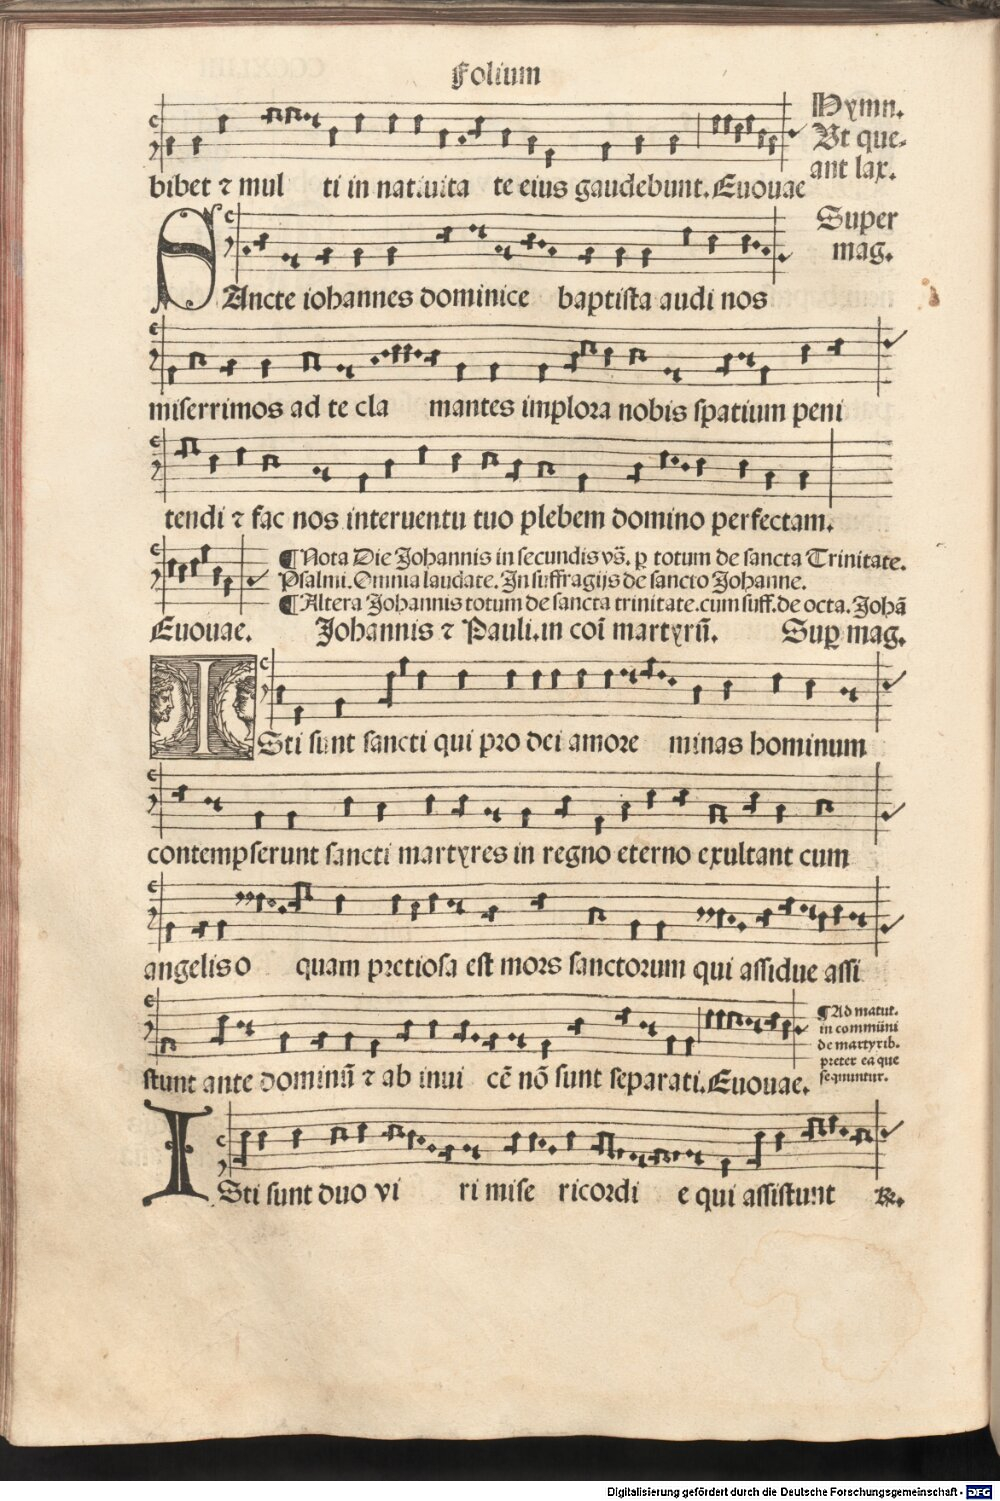 Folium
Hymn.
Ut que-
ant lax.
bibet ⁊ mul ti in natiuita te eius gaudebunt. Euouae
Super
mag.
SAncte iohannes dominice baptista audi nos
miserrimos ad te cla mantes implora nobis spatium peni
tendi ⁊ fac nos interuentu tuo plebem domino perfectam.
¶Nota Die Johannis in secundis vs̄. ꝑ totum de sancta Trinitate.
Psalmi. Omnia laudate. In suffragijs de sancto Johanne.
¶Altera Johannis totum de sancta trinitate. cum suff. de octa. Johā
Euouae. Johannis ⁊ Pauli. in coī martyrū. Suꝑ mag.
ISti sunt sancti qui pro dei amore minas hominum
contempserunt sancti martyres in regno eterno exultant cum
angelis o quam pretiosa est mors sanctorum qui assidue assi
stunt ante dominū ⁊ ab inui cē nō sunt separati. Euouae.
¶Ad matut.
in communi
de martyrib.
preter ea que
sequuntur.
ISti sunt duo vi ri mise ricordi e qui assistunt ℟.
Digitalisierung gefördert durch die Deutsche Forschungsgemeinschaft - DFG